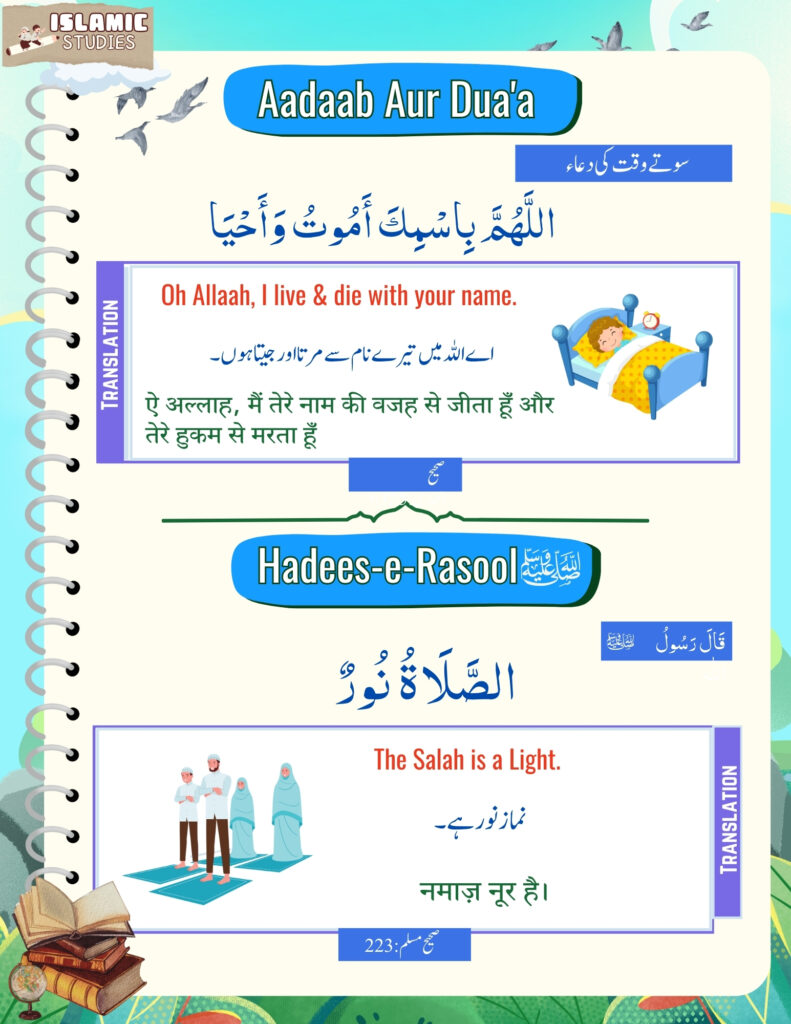 ISLAMIC
STUDIES
Aadaab Aur Dua'a
سوتے وقت کی دعاء
اللَّهُمَّ بِاسْمِكَ أَمُوتُ وَأَحْيَا
TRANSLATION
Oh Allaah, I live & die with your name.
اے اللہ میں تیرے نام سے مرتا اور جیتا ہوں۔
ऐ अल्लाह, मैं तेरे नाम की वजह से जीता हूँ और
तेरे हुकम से मरता हूँ
صحیح
Hadees-e-Rasool ﷺ
قَالَ رَسُولُ ﷺ
الصَّلَاةُ نُورٌ
TRANSLATION
The Salah is a Light.
نماز نور ہے۔
नमाज़ नूर है।
صحیح مسلم:223